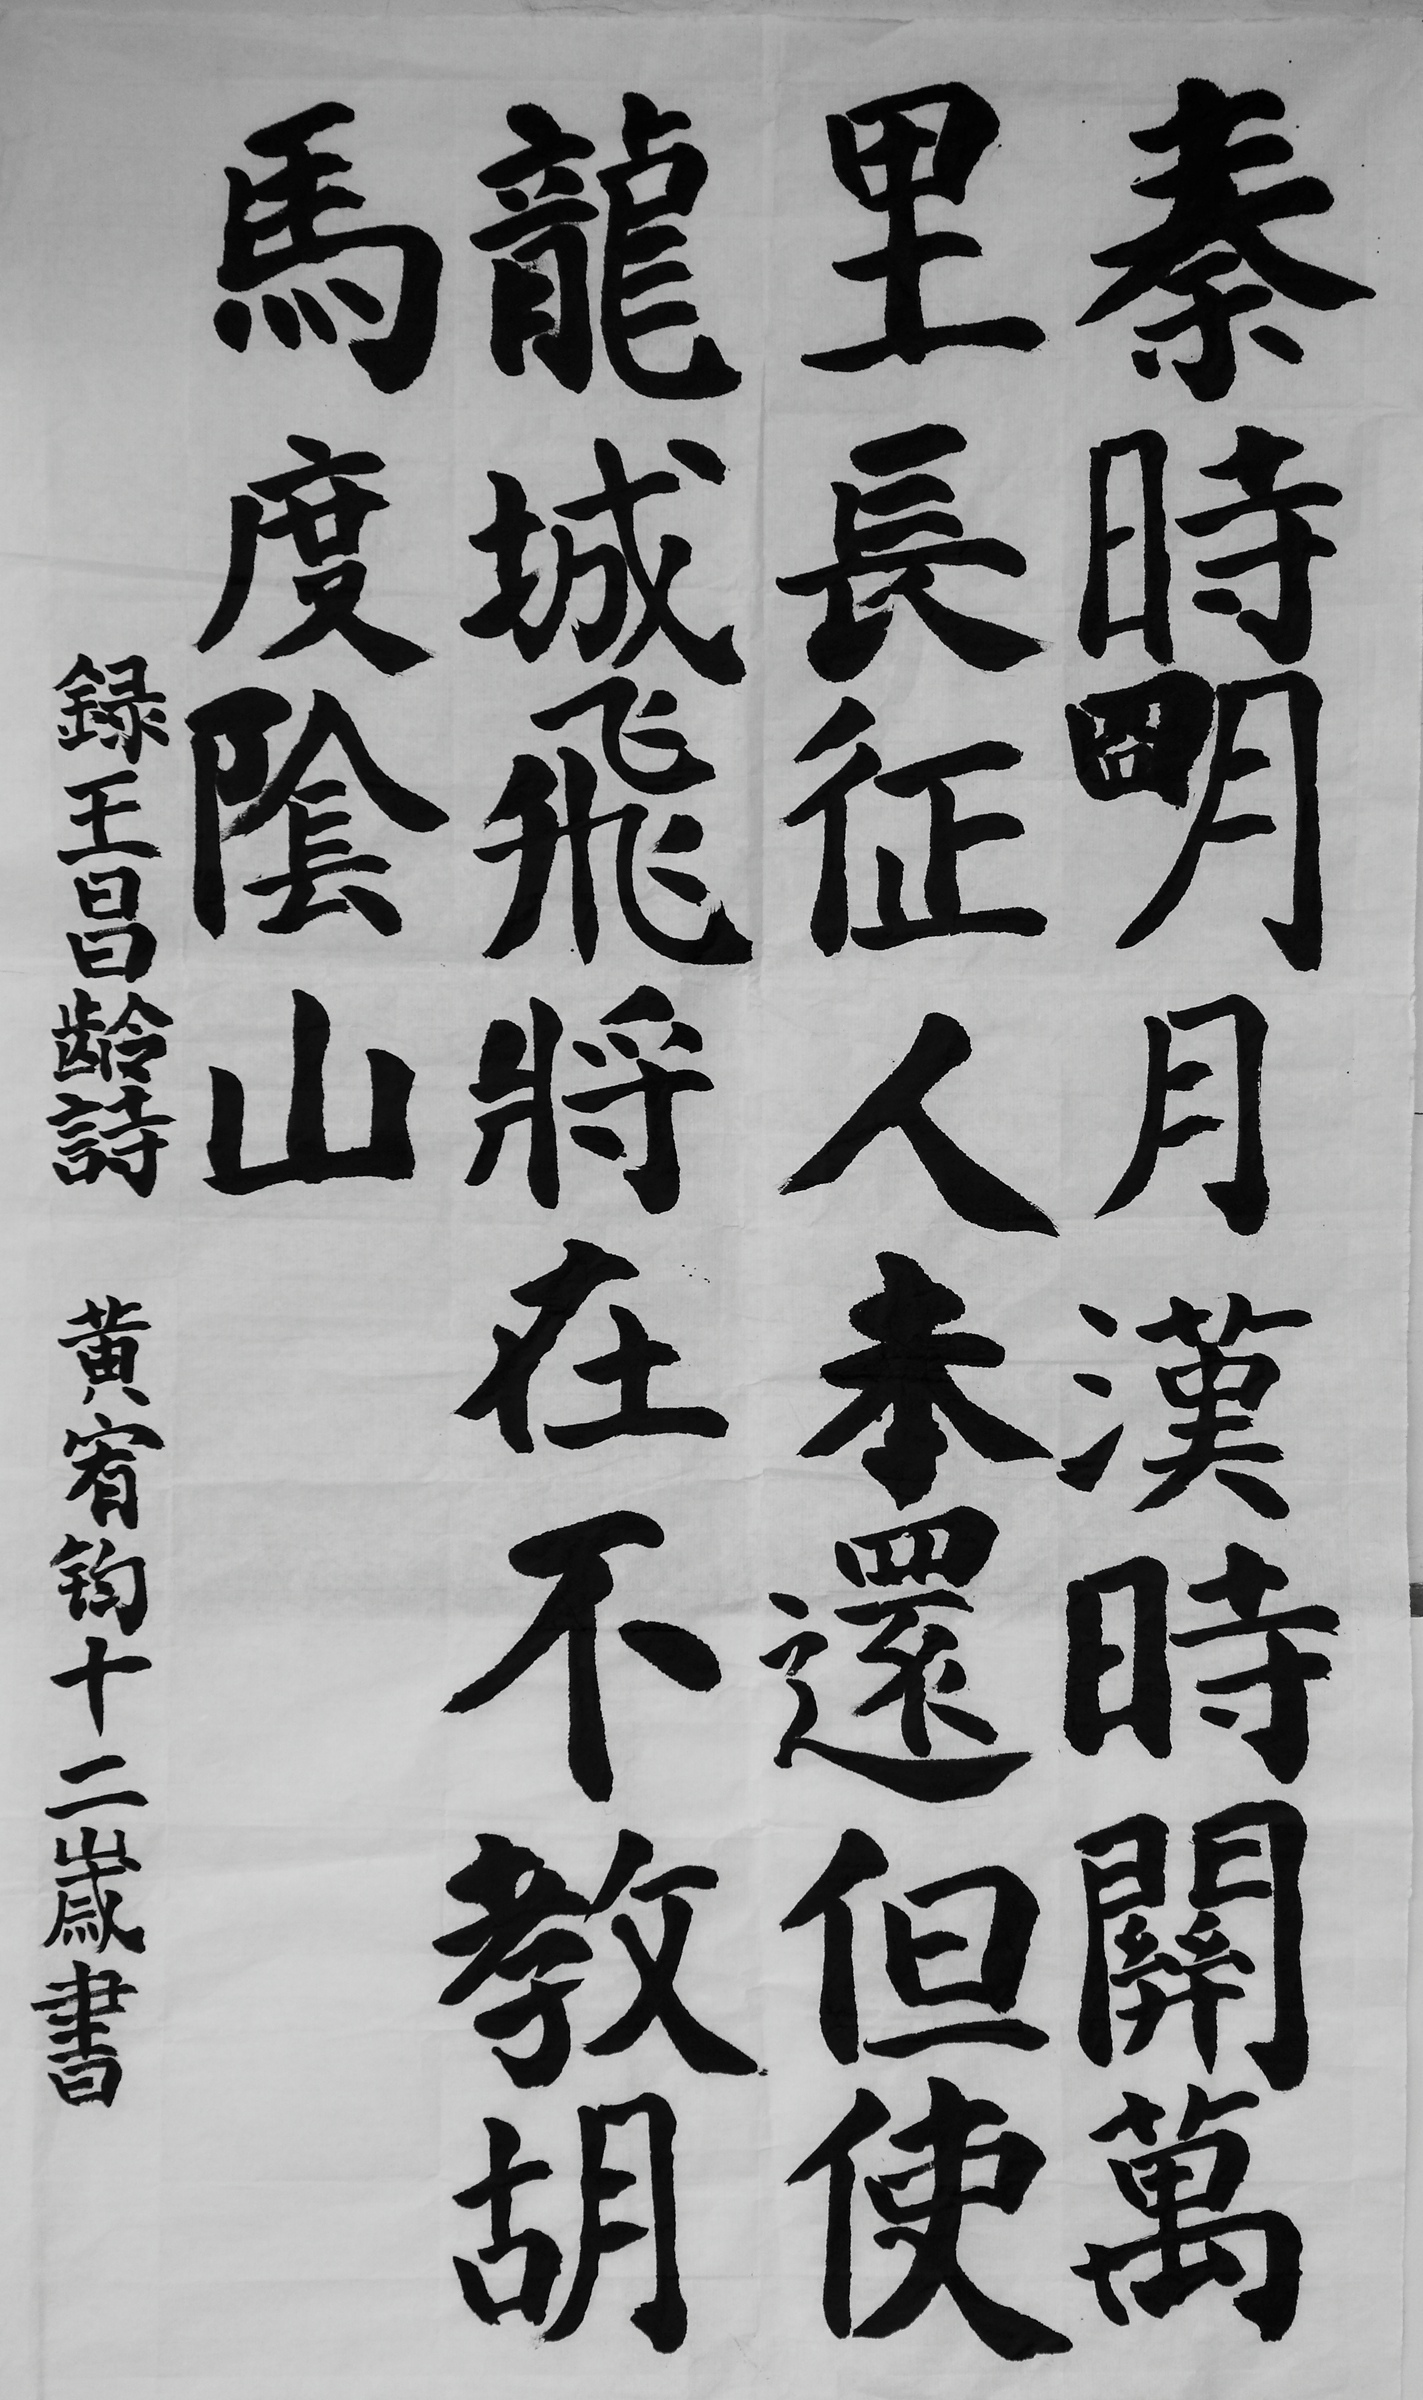 秦時明月漢時關萬
里長征人未還但使
龍城飛將在不教胡
馬度陰山
録王昌齡詩 黄宥钧十二歲書